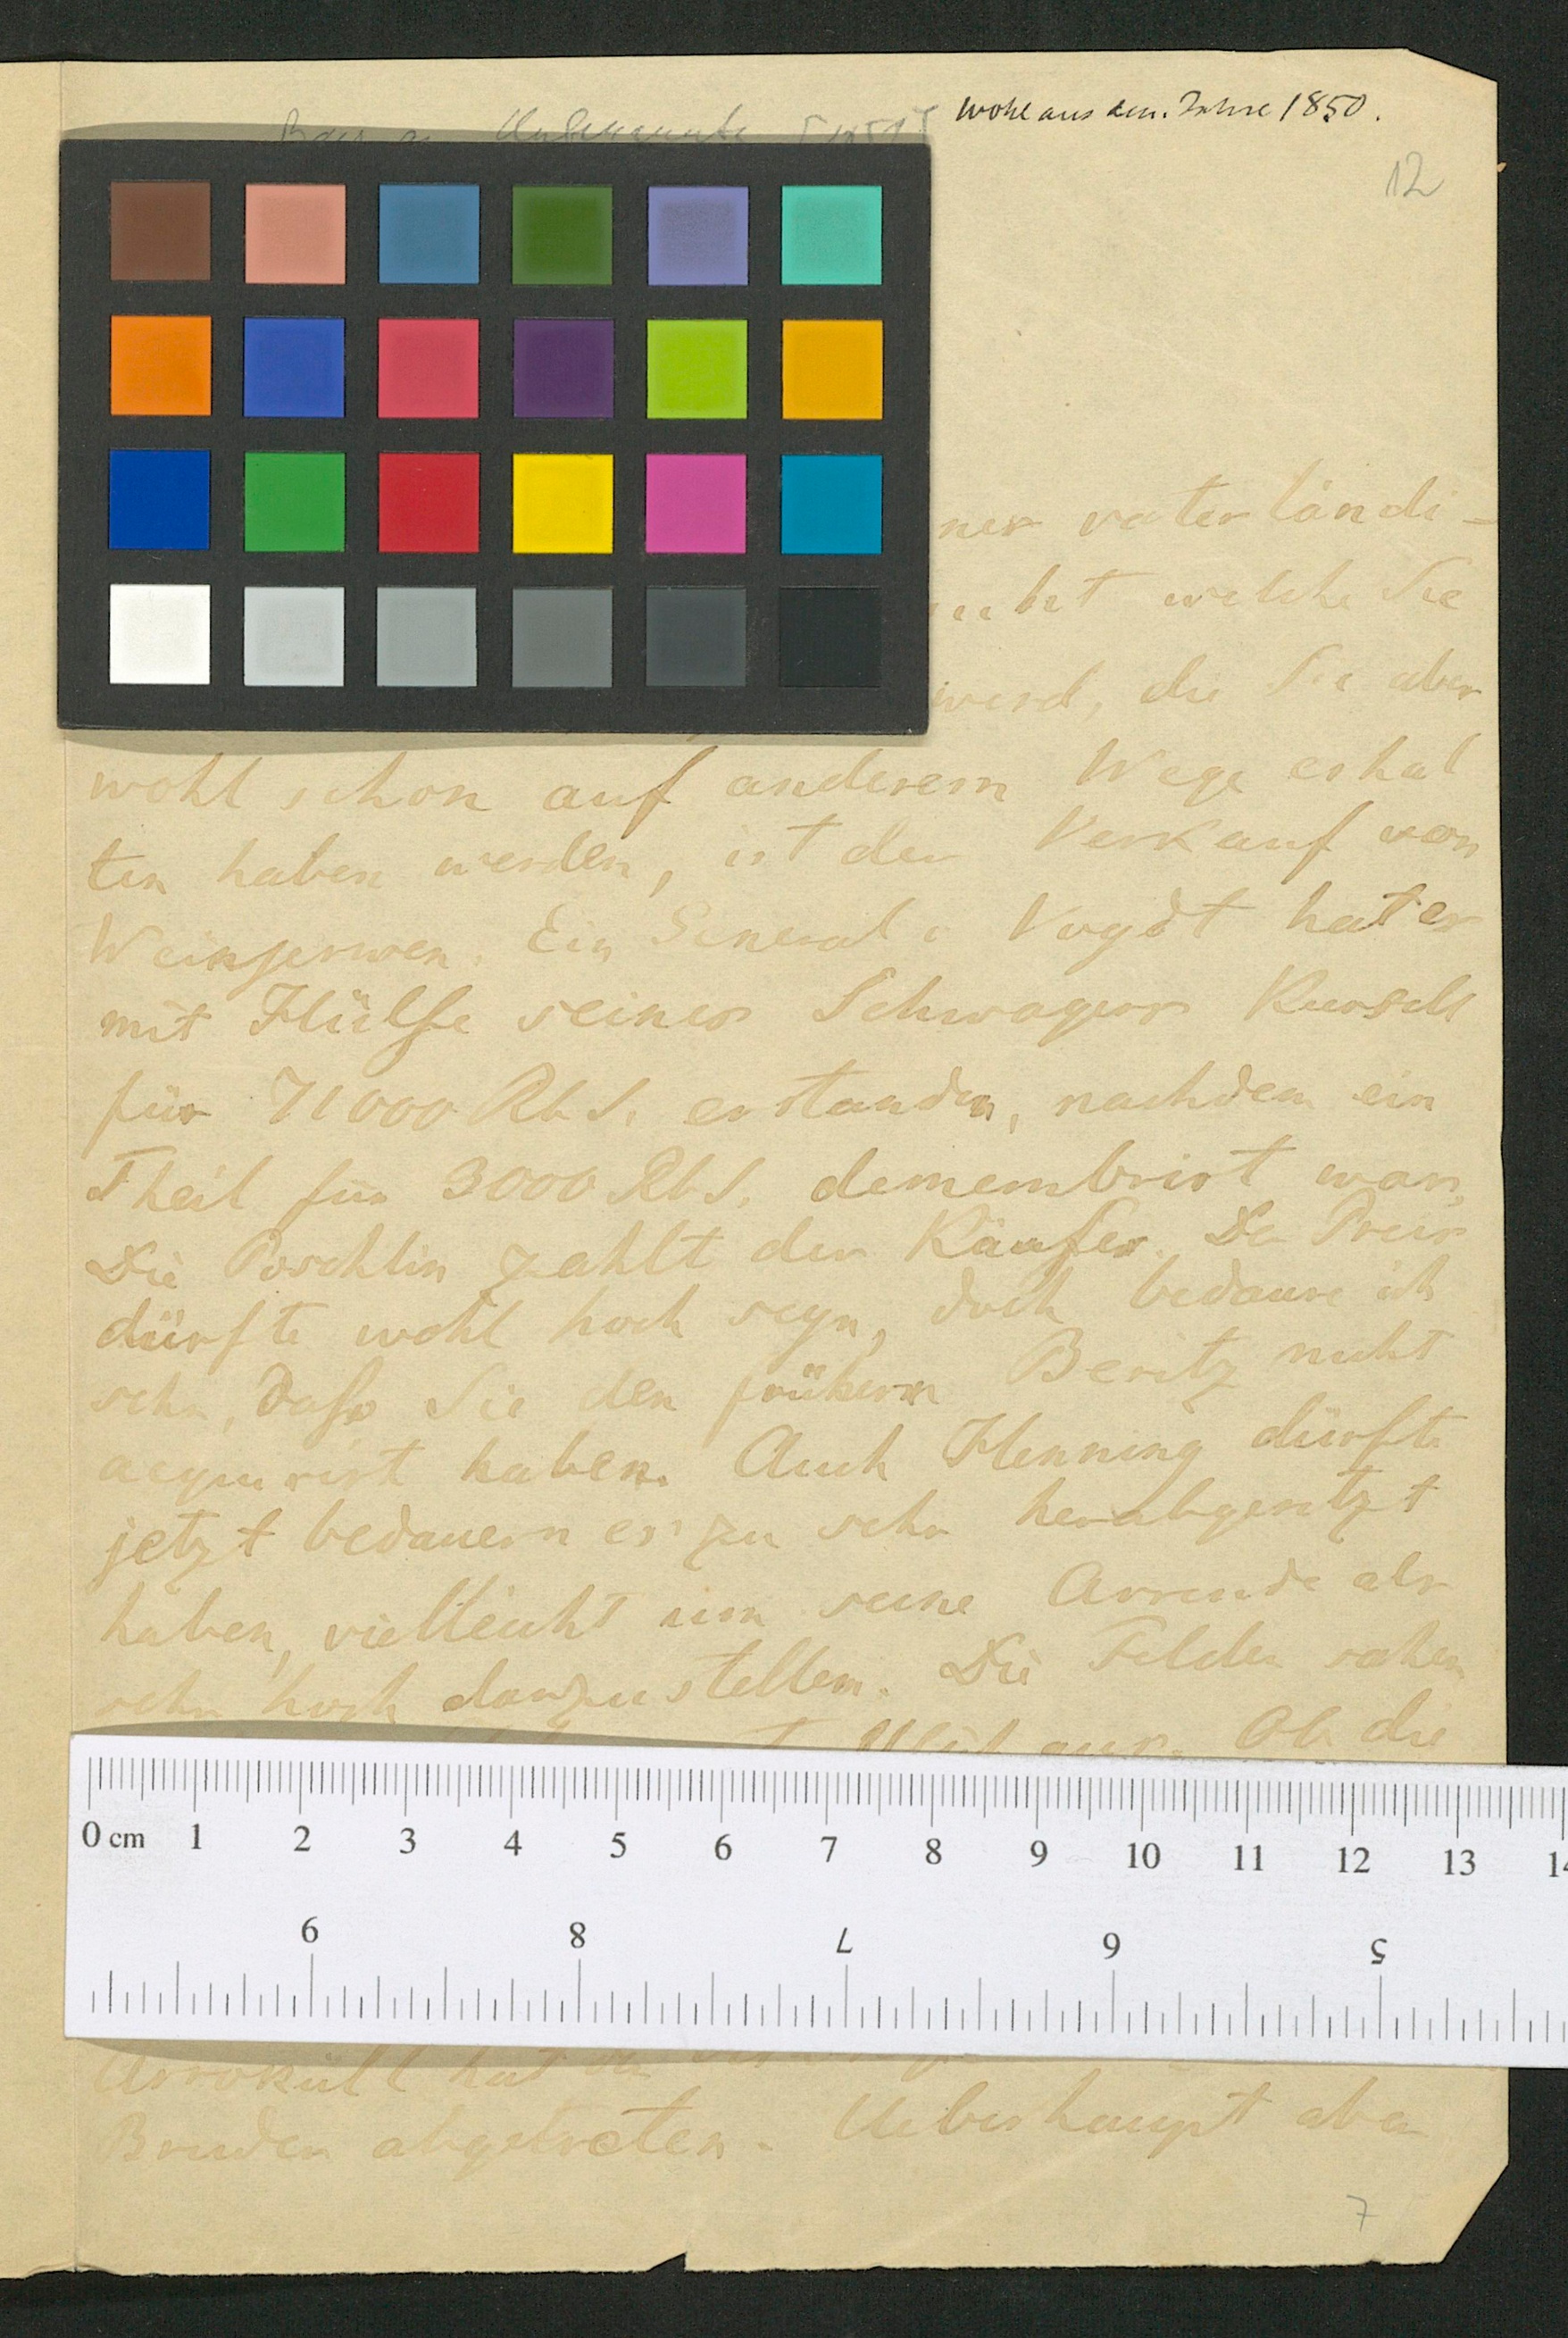 Wohl aus dem Jahre 1850.
12
ner vaterländi-
welche Sie
wird, die Sie aber
wohl schon auf anderem Wege erhal
ten haben werden, ist der Verkauf von
Weinjerwen. Ein General v Vogdt hat es
mit Hülfe seines Schwagers Kursell
für 71000 Rb S. erstanden, nachdem ein
Theil für 3000 Rb S. demembrirt war.
Die Poschlin zahlt der Käufer. Der Preis
dürfte wohl hoch seyn, doch bedaure ich
sehr, dass Sie den frühern Besitz nicht
acquirirt haben. Auch Henning dürfte
jetzt bedauern es zu sehr herabgesetzt
haben, vielleicht um seine Arrende als
sehr hoch darzustellen. Die Felder sahen
aus. Ob die
0 cm 1 2 3 4 5 6 7 8 9 10 11 12 13 14
9 8 7 6 5
Arroküll hat
Bruder abgetreten. Ueberhaupt aber
7